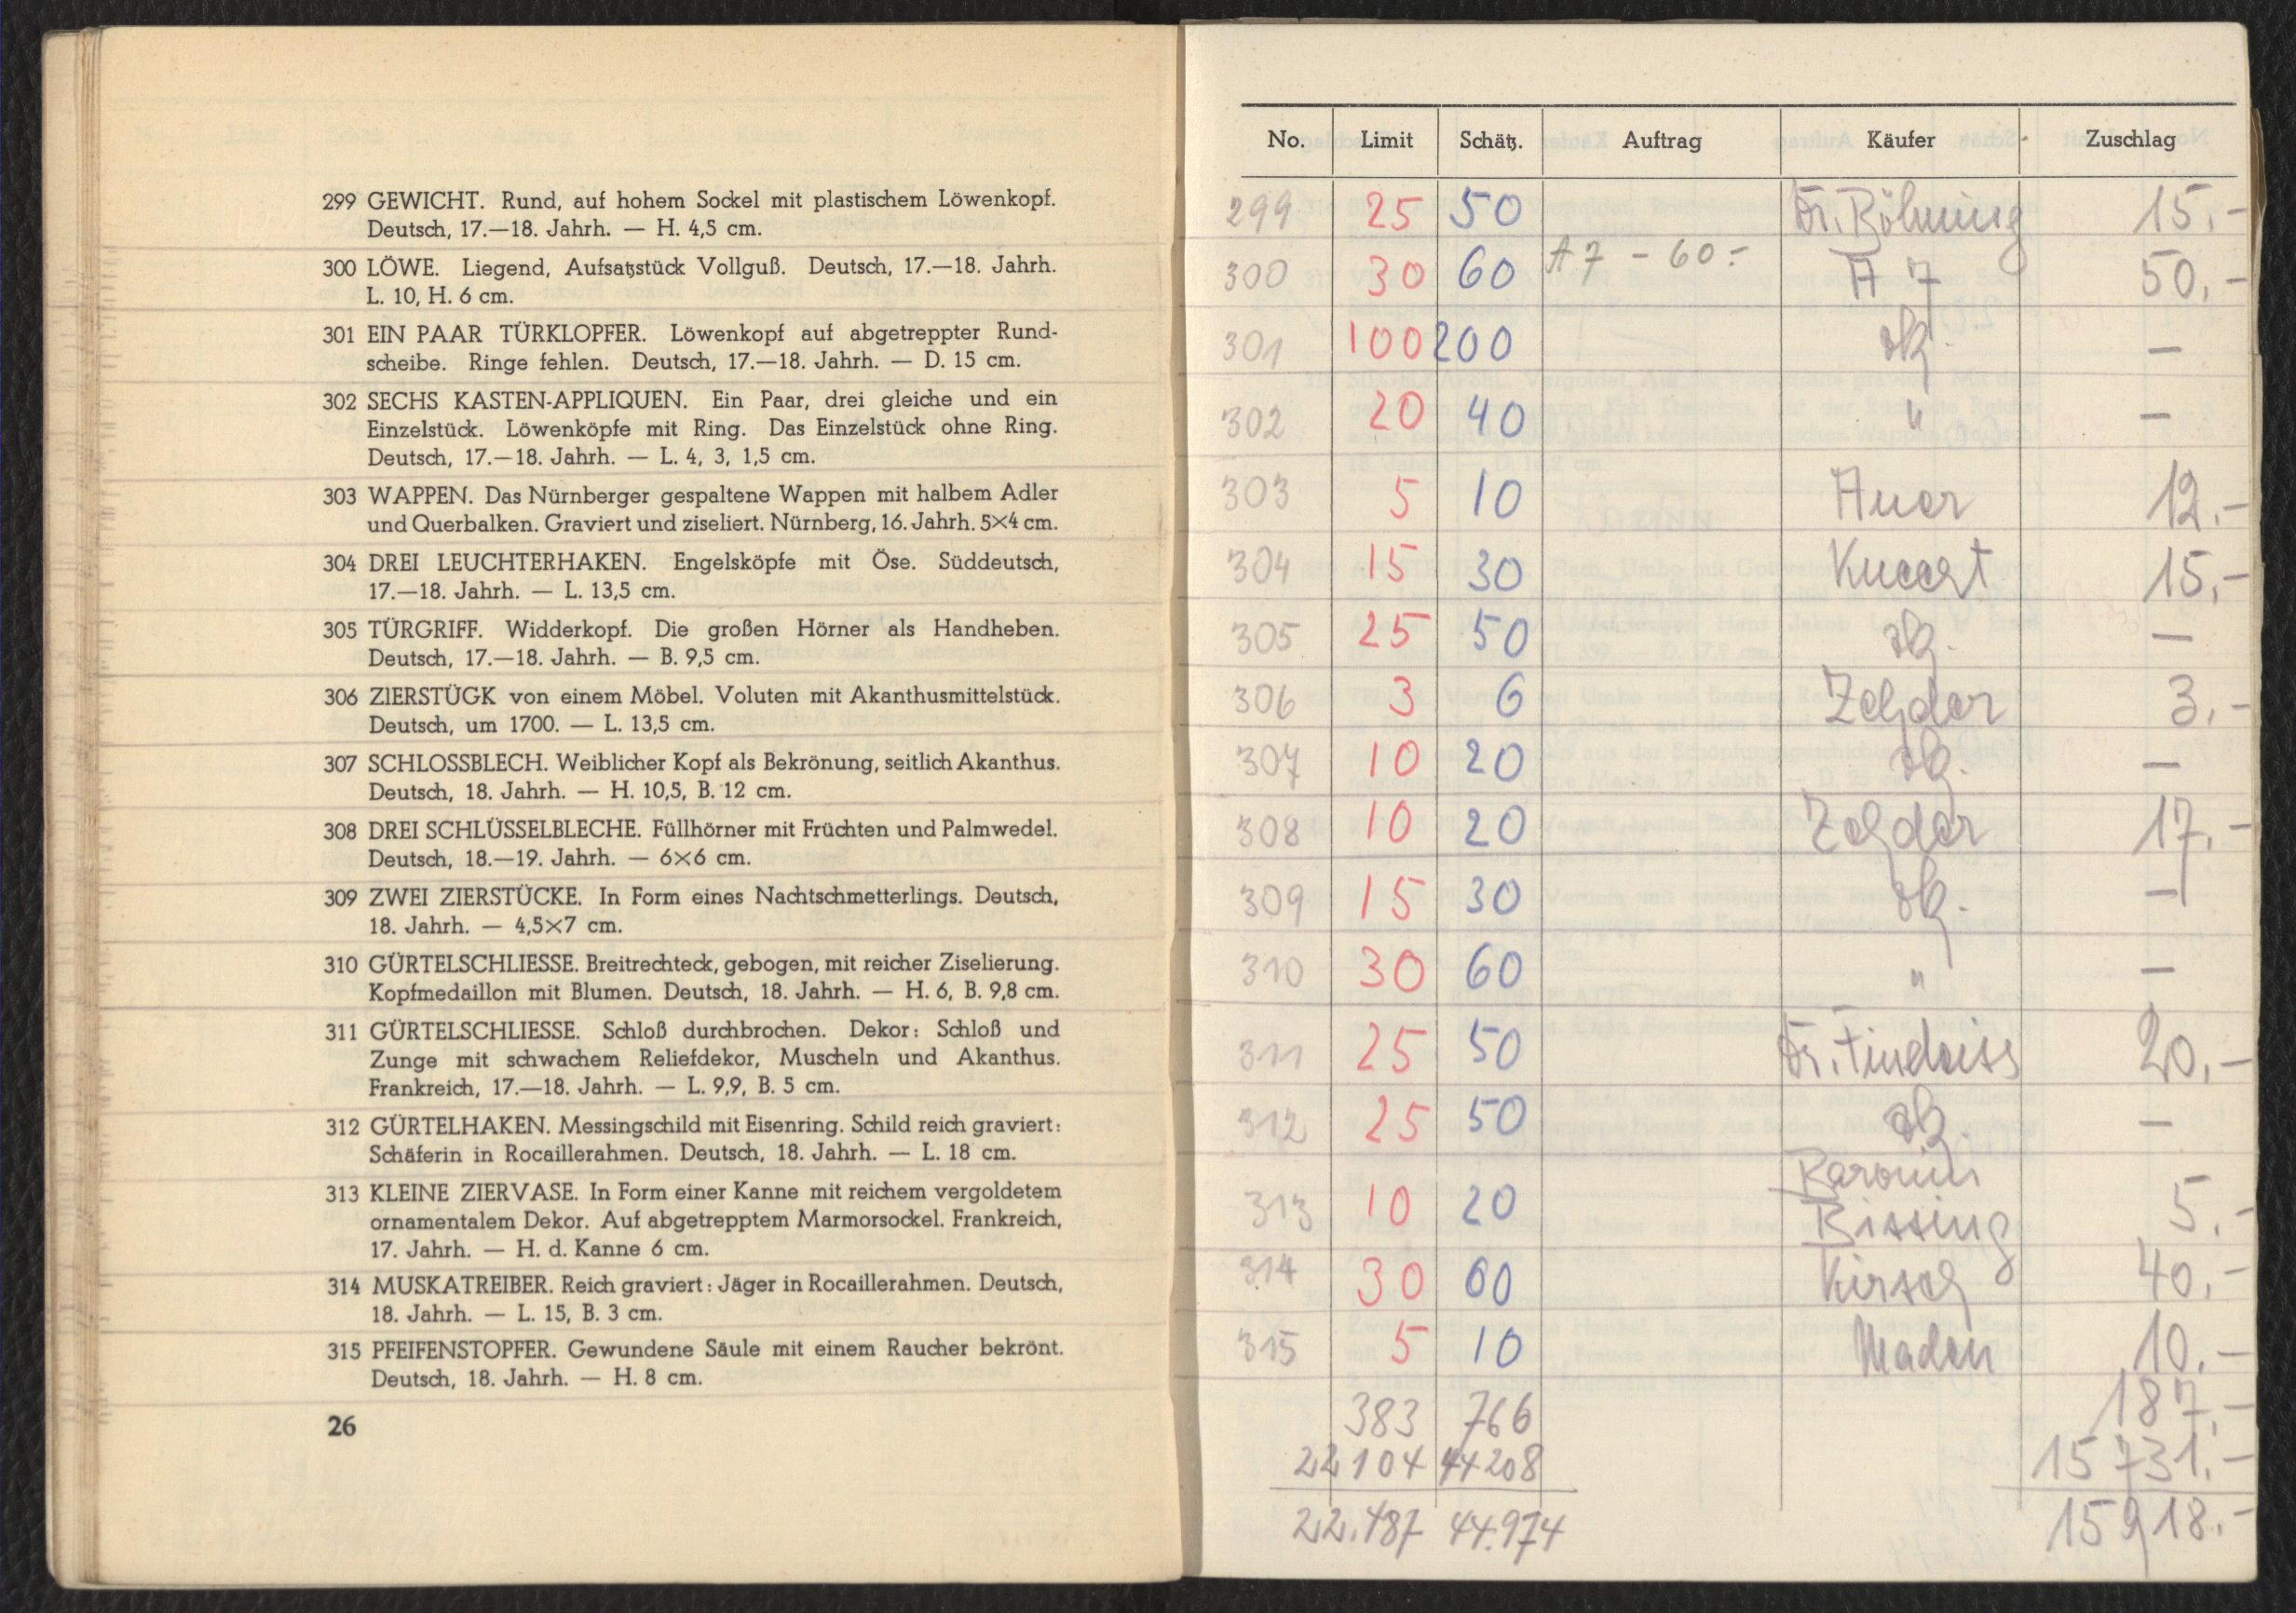 299 GEWICHT. Rund, auf hohem Sockel mit plastischem Löwenkopf.
Deutsch, 17.—18. Jahrh. — H. 4,5 cm.
300 LÖWE. Liegend, Aufsatzstück Vollguß. Deutsch, 17.—18. Jahrh.
L. 10, H. 6 cm.
301 EIN PAAR TÜRKLOPFER. Löwenkopf auf abgetreppter Rund-
scheibe. Ringe fehlen. Deutsch, 17.—18. Jahrh. — D. 15 cm.
302 SECHS KASTEN-APPLIQUEN. Ein Paar, drei gleiche und ein
Einzelstück. Löwenköpfe mit Ring. Das Einzelstück ohne Ring.
Deutsch, 17.—18. Jahrh. — L. 4, 3, 1,5 cm.
303 WAPPEN. Das Nürnberger gespaltene Wappen mit halbem Adler
und Querbalken. Graviert und ziseliert. Nürnberg, 16. Jahrh. 5×4 cm.
304 DREI LEUCHTERHAKEN. Engelsköpfe mit Öse. Süddeutsch,
17.—18. Jahrh. — L. 13,5 cm.
305 TÜRGRIFF. Widderkopf. Die großen Hörner als Handheben.
Deutsch, 17.—18. Jahrh. — B. 9,5 cm.
306 ZIERSTÜGK von einem Möbel. Voluten mit Akanthusmittelstück.
Deutsch, um 1700. — L. 13,5 cm.
307 SCHLOSSBLECH. Weiblicher Kopf als Bekrönung, seitlich Akanthus.
Deutsch, 18. Jahrh. — H. 10,5, B. 12 cm.
308 DREI SCHLÜSSELBLECHE. Füllhörner mit Früchten und Palmwedel.
Deutsch, 18.—19. Jahrh. — 6×6 cm.
309 ZWEI ZIERSTÜCKE. In Form eines Nachtschmetterlings. Deutsch,
18. Jahrh. — 4,5×7 cm.
310 GÜRTELSCHLIESSE. Breitrechteck, gebogen, mit reicher Ziselierung.
Kopfmedaillon mit Blumen. Deutsch, 18. Jahrh. — H. 6, B. 9,8 cm.
311 GÜRTELSCHLIESSE. Schloß durchbrochen. Dekor: Schloß und
Zunge mit schwachem Reliefdekor, Muscheln und Akanthus.
Frankreich, 17.—18. Jahrh. — L. 9,9, B. 5 cm.
312 GÜRTELHAKEN. Messingschild mit Eisenring. Schild reich graviert:
Schäferin in Rocaillerahmen. Deutsch, 18. Jahrh. — L. 18 cm.
313 KLEINE ZIERVASE. In Form einer Kanne mit reichem vergoldetem
ornamentalem Dekor. Auf abgetrepptem Marmorsockel. Frankreich,
17. Jahrh. — H. d. Kanne 6 cm.
314 MUSKATREIBER. Reich graviert: Jäger in Rocaillerahmen. Deutsch,
18. Jahrh. — L. 15, B. 3 cm.
315 PFEIFENSTOPFER. Gewundene Säule mit einem Raucher bekrönt.
Deutsch, 18. Jahrh. — H. 8 cm.
26
No. Limit Schätz. Auftrag Käufer Zuschlag
299 25 50 Dr. Böhming 15.-
300 30 60 A 7 - 60.- A 7 50.-
301 100 200 —
302 20 40 " —
303 5 10 Auer 12.-
304 15 30 15.-
305 25 50 —
306 3 6 3.-
307 10 20 —
308 10 20 17.-
309 15 30 —
310 30 60 " —
311 25 50 Dr. 20.-
312 25 50 —
313 10 20 Baronin
Bissing 5.-
314 30 60 Kirsch 40.-
315 5 10 Maden 10.-
383 766 187.-
22104 44208 15731.-
22.487 44.974 15918.-